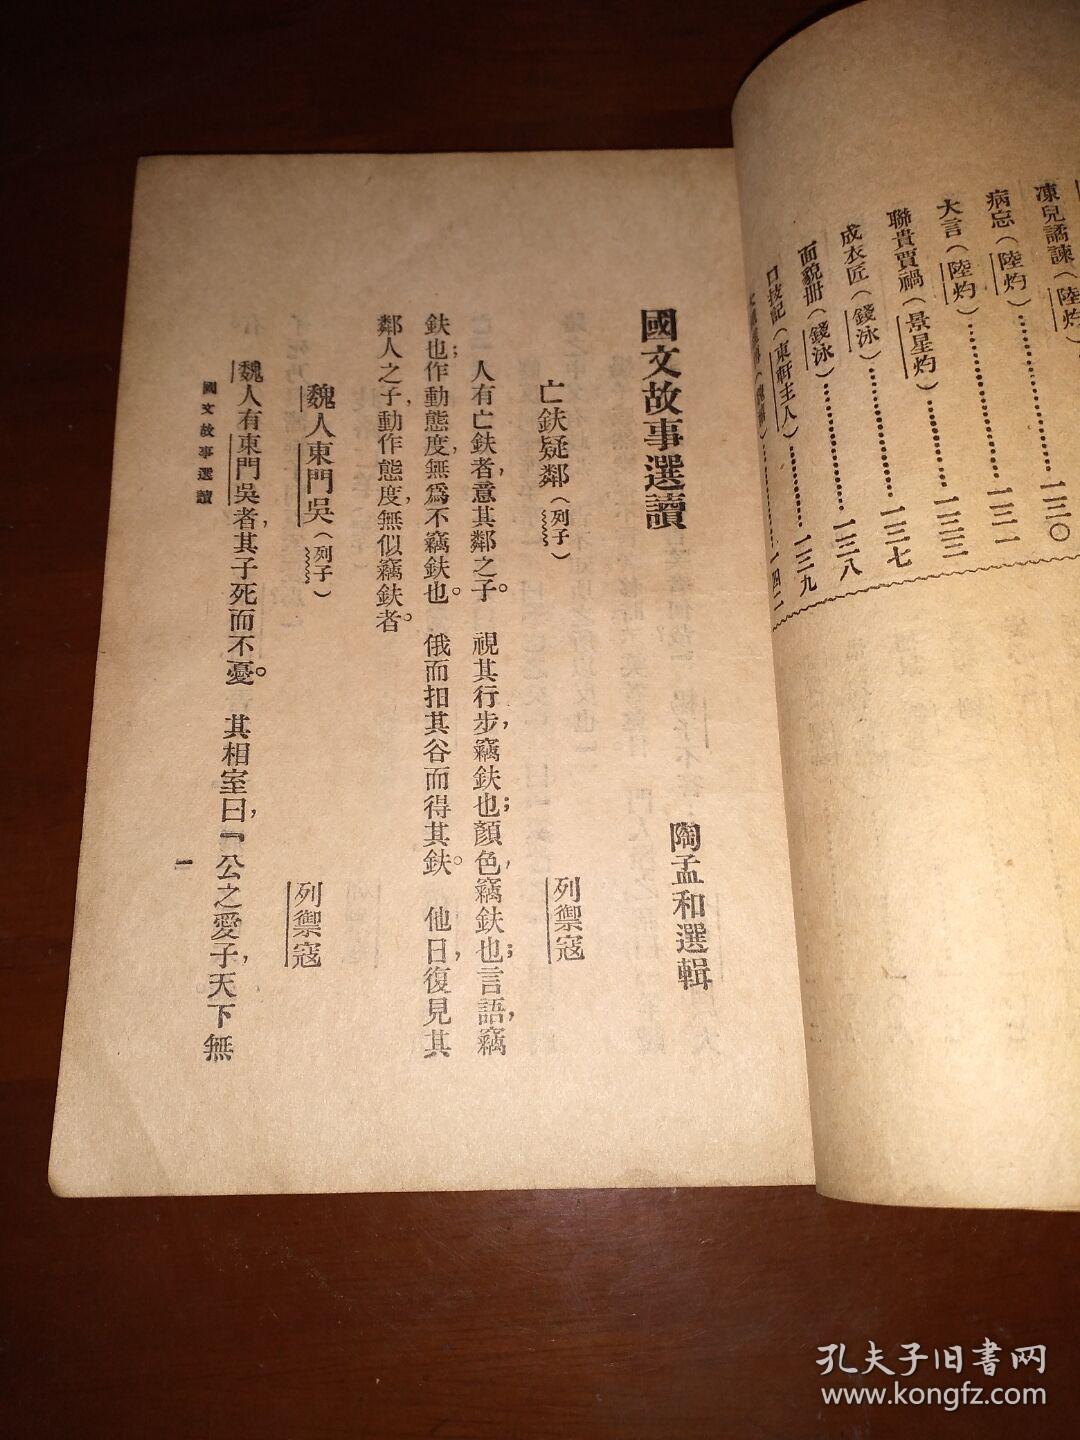 凍兒譎諫(陸灼)…………一三〇
病忘(陸灼)…………一三二
大言(陸灼)…………一三三
聯貴賈禍(景星灼)…………一三七
成衣匠(錢泳)…………一三八
面貌册(錢泳)…………一三九
口技記(東軒主人)
一四二
國文故事選讀
陶孟和選輯
亡鈇疑鄰(列子)
列禦寇
人有亡鈇者,意其鄰之子。視其行步,竊鈇也;顏色,竊鈇也;言語,竊
鈇也;作動態度,無爲不竊鈇也。俄而抇其谷而得其鈇。他日,復見其
鄰人之子,動作態度,無似竊鈇者。
魏人東門吳(列子)
列禦寇
魏人有東門吳者,其子死而不憂。其相室曰,「公之愛子,天下無
國文故事選讀
一
孔夫子旧書网
www.kongfz.com